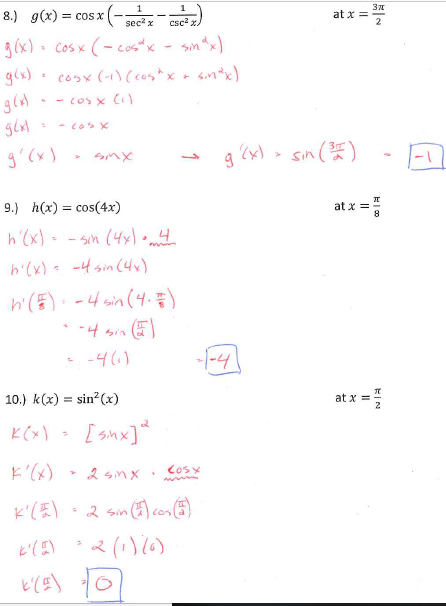 8.) g(x) = cos x (− 1/sec² x − 1/csc² x) at x = 3π/2
g(x) = cos x (− cos² x − sin² x)
g(x) = cos x (-1) (cos² x + sin² x)
g(x) = - cos x (1)
g(x) = - cos x
g'(x) = sin x → g'(x) = sin (3π/2) = -1
9.) h(x) = cos(4x) at x = π/8
h'(x) = - sin (4x) • 4
h'(x) = -4 sin (4x)
h'(π/8) = -4 sin (4 · π/8)
= -4 sin (π/2)
= -4(1) = -4
10.) k(x) = sin²(x) at x = π/2
K(x) = [sin x]²
K'(x) = 2 sin x · cos x
K'(π/2) = 2 sin(π/2) cos(π/2)
K'(π/2) = 2 (1) (0)
K'(π/2) = 0